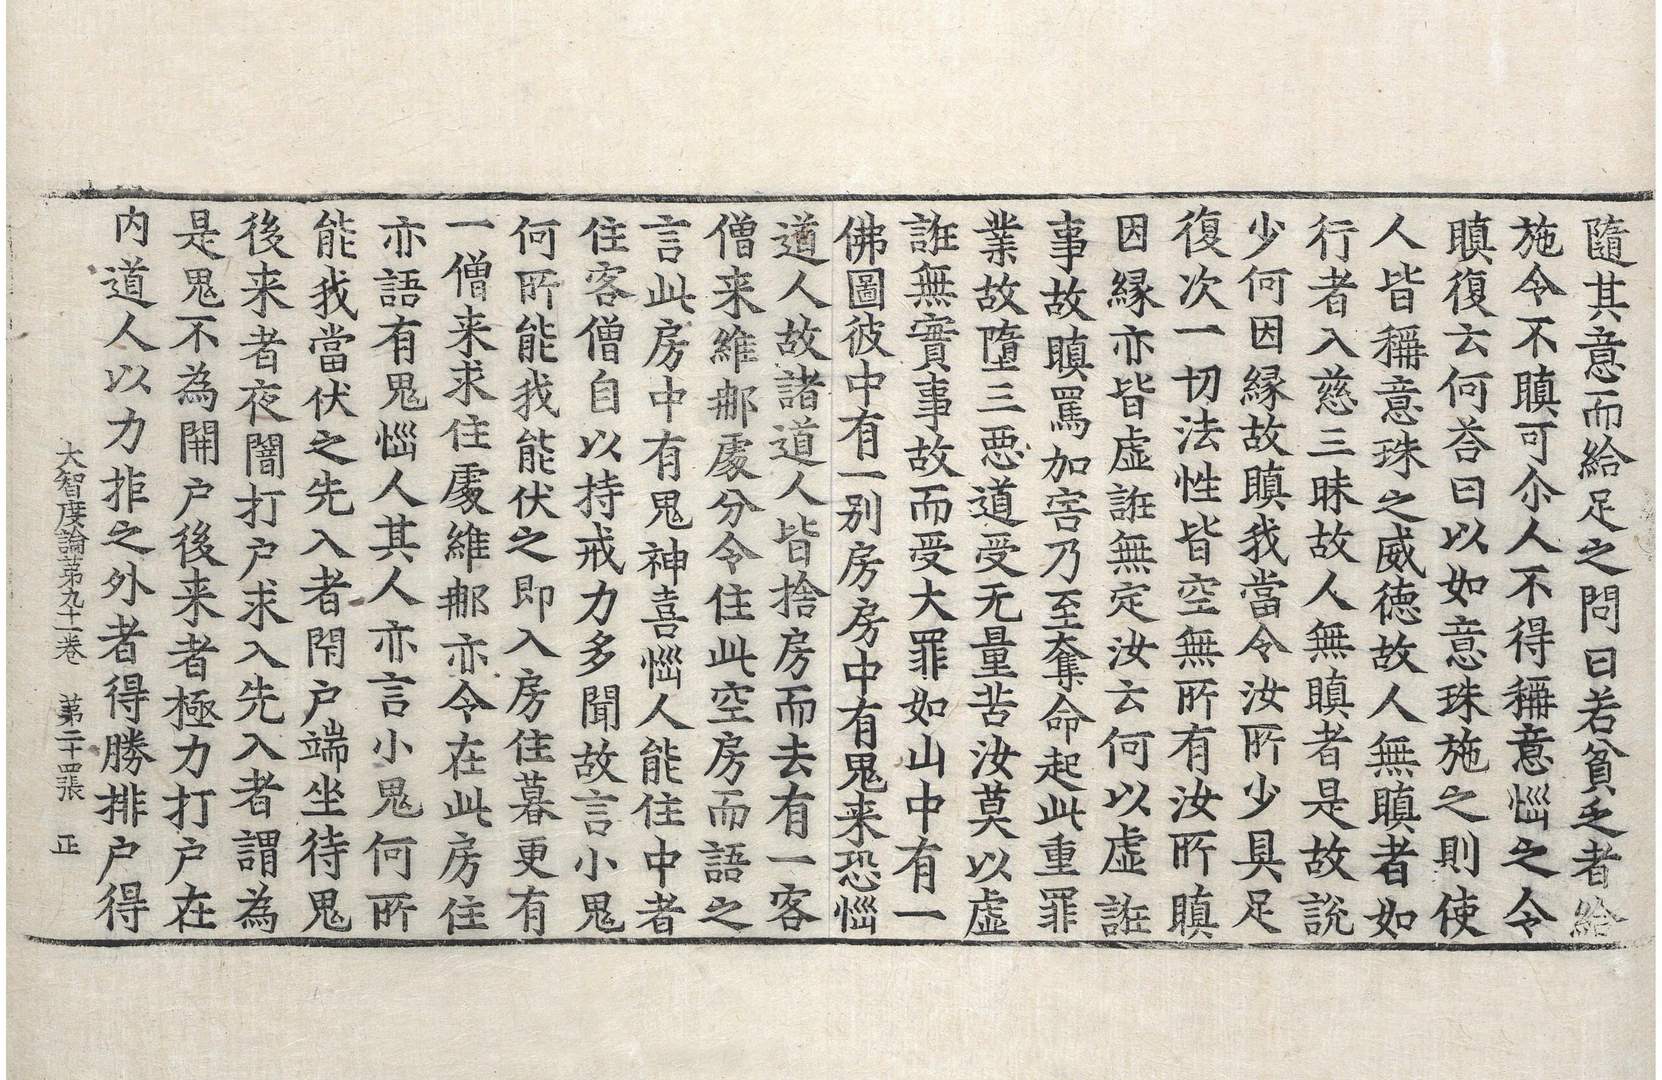 隨其意而給足之問曰若貧乏者給
施令不瞋可尒人不得稱意惱之令
瞋復云何荅曰以如意珠施之則使
人皆稱意珠之威德故人無瞋者如
行者入慈三昧故人無瞋者是故說
少何因緣故瞋我當令汝所少具足
復次一切法性皆空無所有汝所瞋
因緣亦皆虛誑無定汝云何以虛誑
事故瞋罵加害乃至奪命起此重罪
業故墮三惡道受无量苦汝莫以虛
誑無實事故而受大罪如山中有一
佛圖彼中有一別房房中有鬼来恐惱
道人故諸道人皆捨房而去有一客
僧来維那處分令住此空房而語之
言此房中有鬼神喜惱人能住中者
住客僧自以持戒力多聞故言小鬼
何所能我能伏之即入房住暮更有
一僧来求住處維那亦令在此房住
亦語有鬼惱人其人亦言小鬼何所
能我當伏之先入者閇户端坐待鬼
後来者夜闇打户求入先入者謂為
是鬼不為開户後来者極力打户在
内道人以力拒之外者得勝排户得
大智度論第九十一卷 第二十四張 正